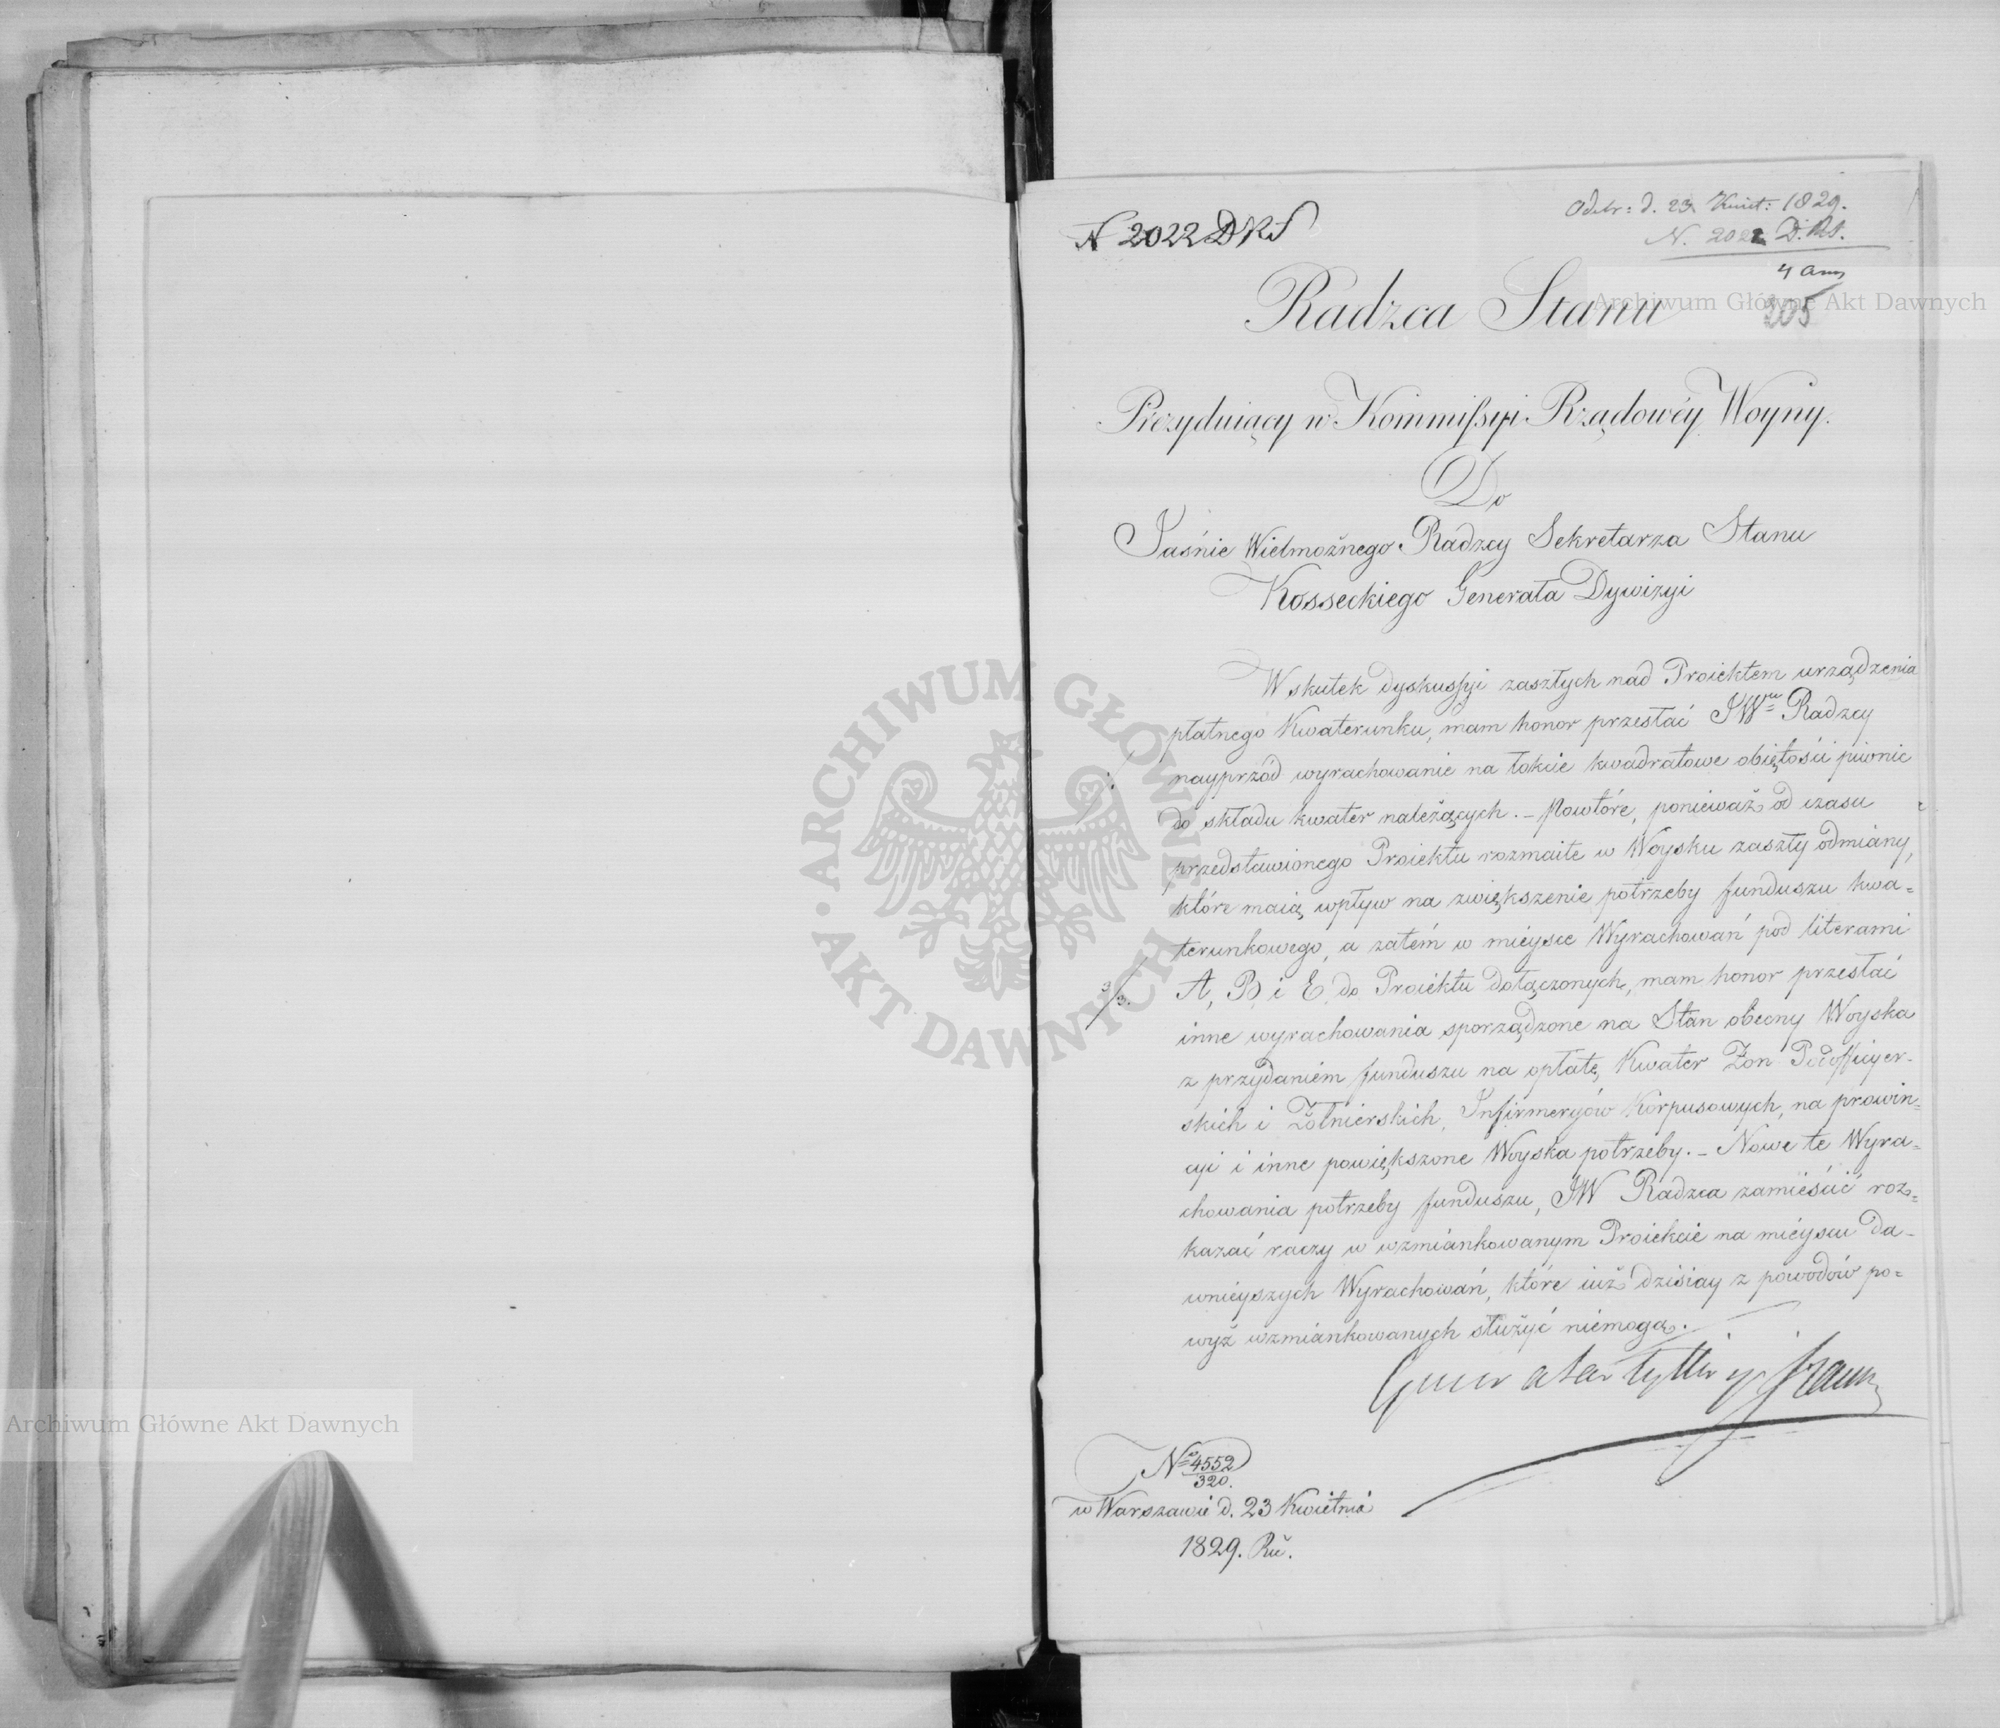 N 2022 DRS
Odebr: d. 23 Kwiet: 1829.
N. 2022 D. RS.
4 ann
205
Radzca Stanu
Prezyduiący w Kommissyi Rządowéy Woyny.
Do
Jaśnie Wielmożnego Radzcy Sekretarza Stanu
Kosseckiego Generała Dywizyi
Wskutek dyskussyi zaszłych nad Proiektem urządzenia
płatnego Kwaterunku, mam honor przesłać JWmu Radzcy
nayprzód wyrachowanie na łokcie kwadratowe obiętości piwnic
do składu kwater należących. – Powtóre, ponieważ od czasu
przedstawionego Proiektu rozmaite w Woysku zaszły odmiany,
które maią wpływ na zwiększenie potrzeby funduszu kwa=
terunkowego, a zatém w mieysce Wyrachowań pod literami
3/3.
A, B, i E, do Proiektu dołączonych, mam honor przesłać
inne wyrachowania sporządzone na Stan obecny Woyska
z przydaniem funduszu na opłatę Kwater Żon Podofficyer-
skich i Żołnierskich, Infirmeryów Korpusowych, na prowin=
cyi i inne powiększone Woyska potrzeby. – Nowe te Wyra=
chowania potrzeby funduszu, JW Radzca zamieścić roz=
kazać raczy w wzmiankowanym Proiekcie na mieyscu da-
wnieyszych Wyrachowań, które iuż dzisiay z powodów po=
wyż wzmiankowanych służyć niemogą.
N° 4552
320.
w Warszawie d. 23 Kwietnia
1829. Ru.
Archiwum Główne Akt Dawnych
Archiwum Główne Akt Dawnych
ARCHIWUM GŁÓWNE
• AKT DAWNYCH